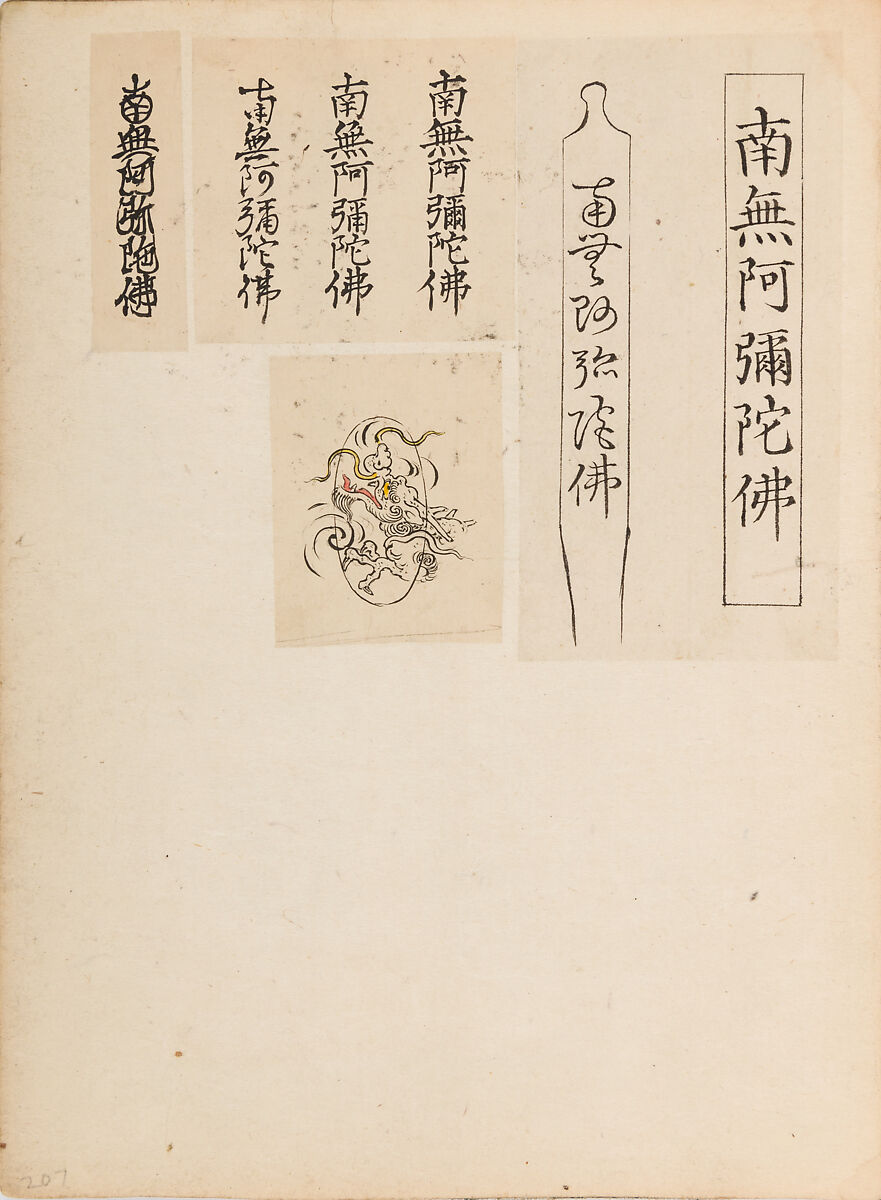 南無阿彌陀佛
南無阿弥陀佛
南無阿彌陀佛
南無阿彌陀佛
南無阿彌陀佛
南無阿弥陀佛
207